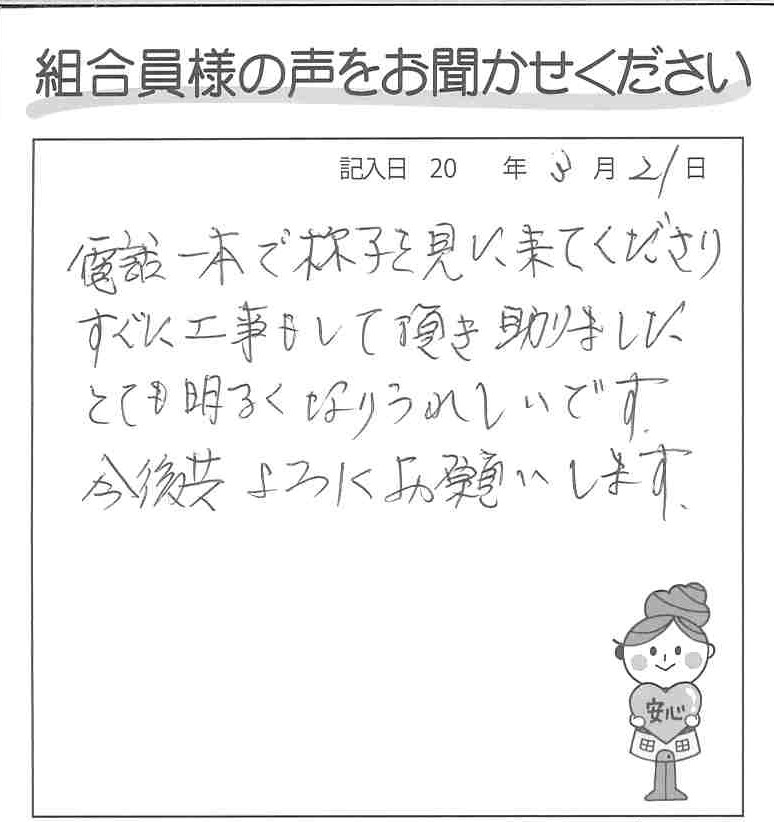 組合員様の声をお聞かせください
記入日 20 年 3 月 21 日
電話一本で様子を見に来てくださり
すぐに工事もして頂き助りました
とても明るくなりうれしいです。
今後共よろしくお願いします。
安心